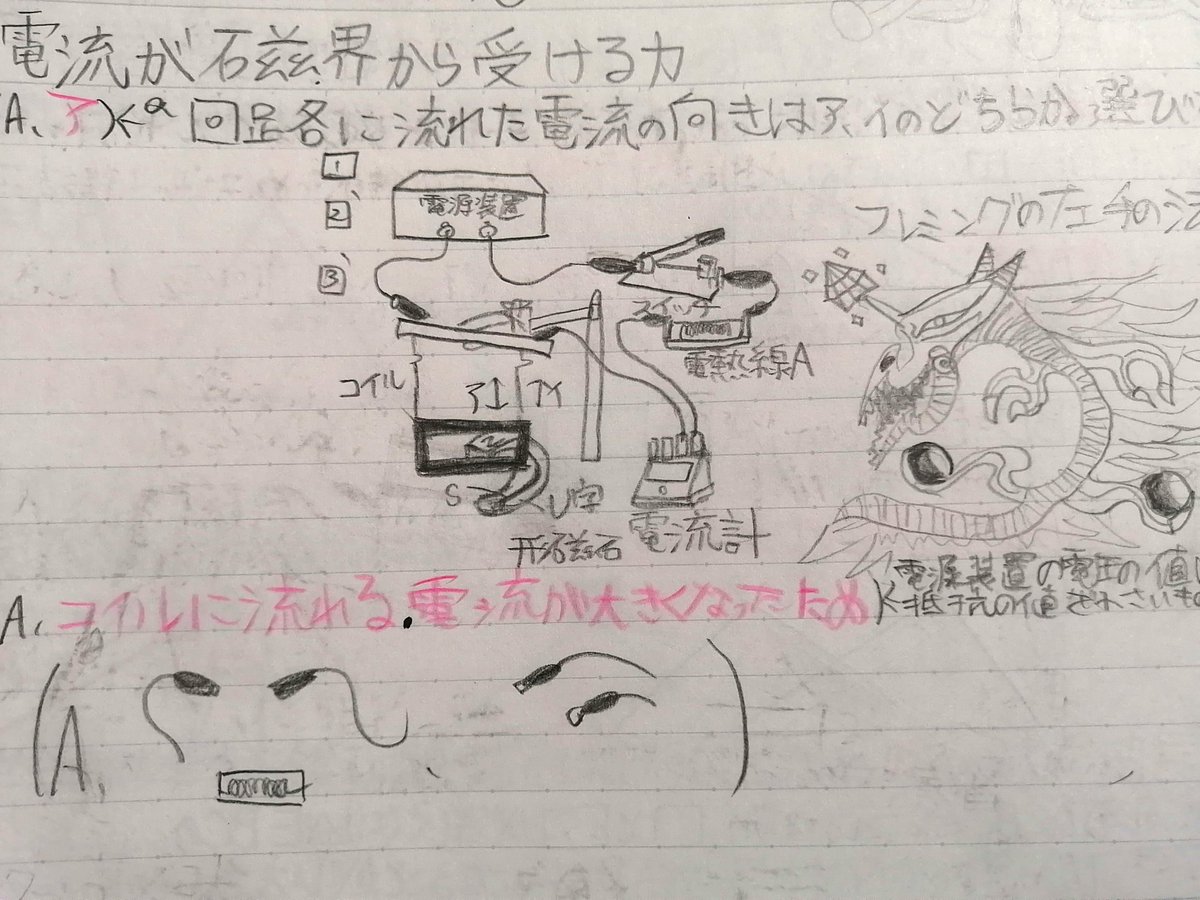 電流が磁界から受ける力
(A、ア)←Q 回路に流れた電流の向きはア、イのどちらか選び
1
2
3
電源装置
フレミングの左手の法
スイッチ
電熱線A
コイル
ア↑ ↑イ
S
U字
形磁石
電流計
電源装置の電圧の値
抵抗の値
A、コイルに流れる電流が大きくなったため
(A、 )